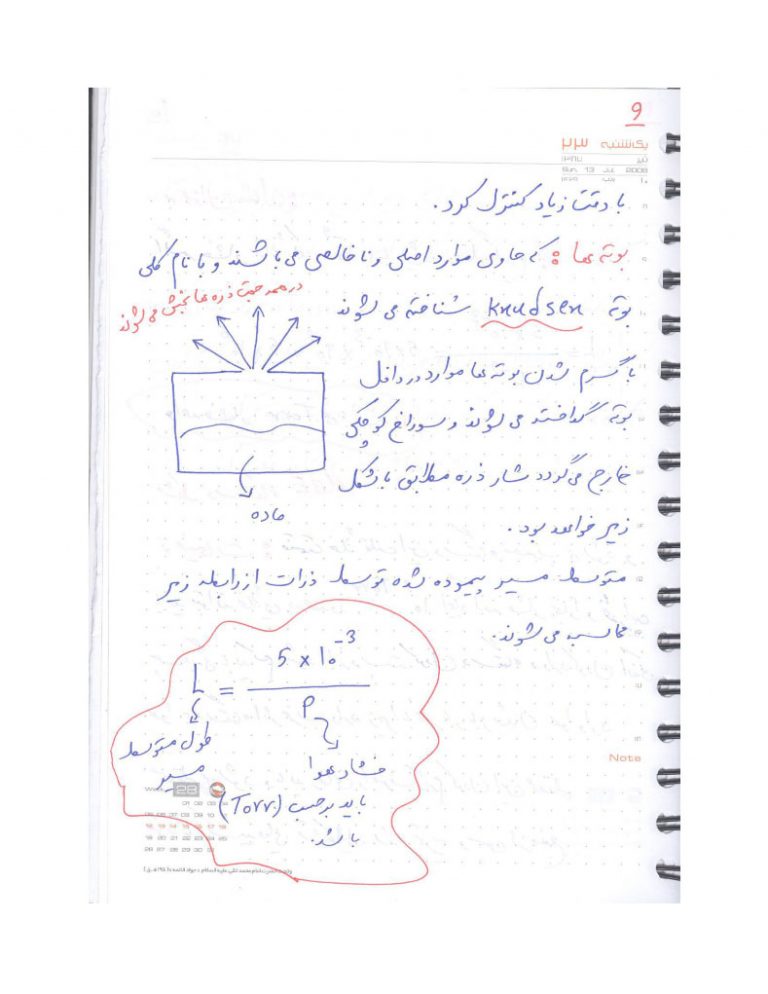 9
یکشنبه ۲۳
تیر
Sun, 13 Jul 2008
۱۰ رجب
با دقت زیاد کنترل کرد.
بوته ها : که حاوی موارد اصلی و ناخالصی می باشند و با نام کلی
بوته knudsen شناخته می شوند
در همه جهت ذره ها پخش می شوند
با گرم شدن بوته ها موارد در داخل
بوته گداخته می شوند و سوراخ کوچکی
خارج می گردد شار ذره مطابق با شکل
زیر خواهد بود.
ماده
متوسط مسیر پیموده شده توسط ذرات از رابطه زیر
محاسبه می شوند.
L = 5 × 10^-3 / P
طول متوسط
مسیر
فشار هوا
باید برحسب (Torr)
باشد.
Note
28